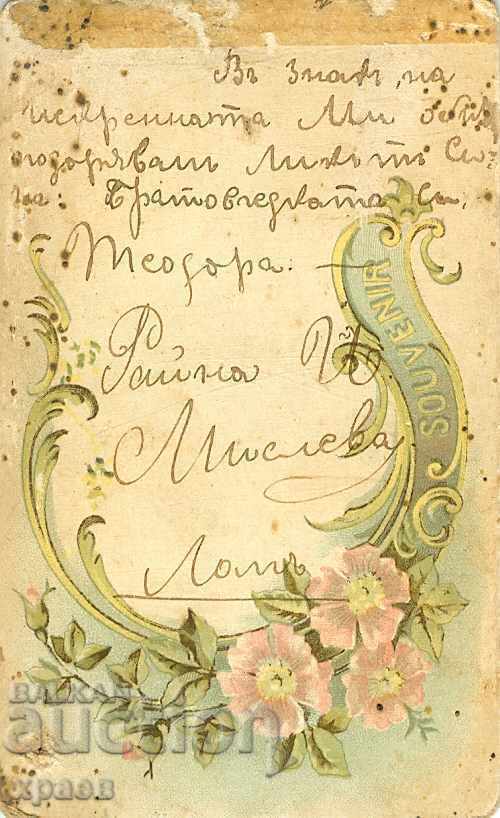 Въ знакъ, на
искренната ми обич
подарявамъ ликътъ си
на: Братовчедката си,
Теодора. —
Райна П.
Мислева
Ломъ
SOUVENIR
BALKAN
auction
храов